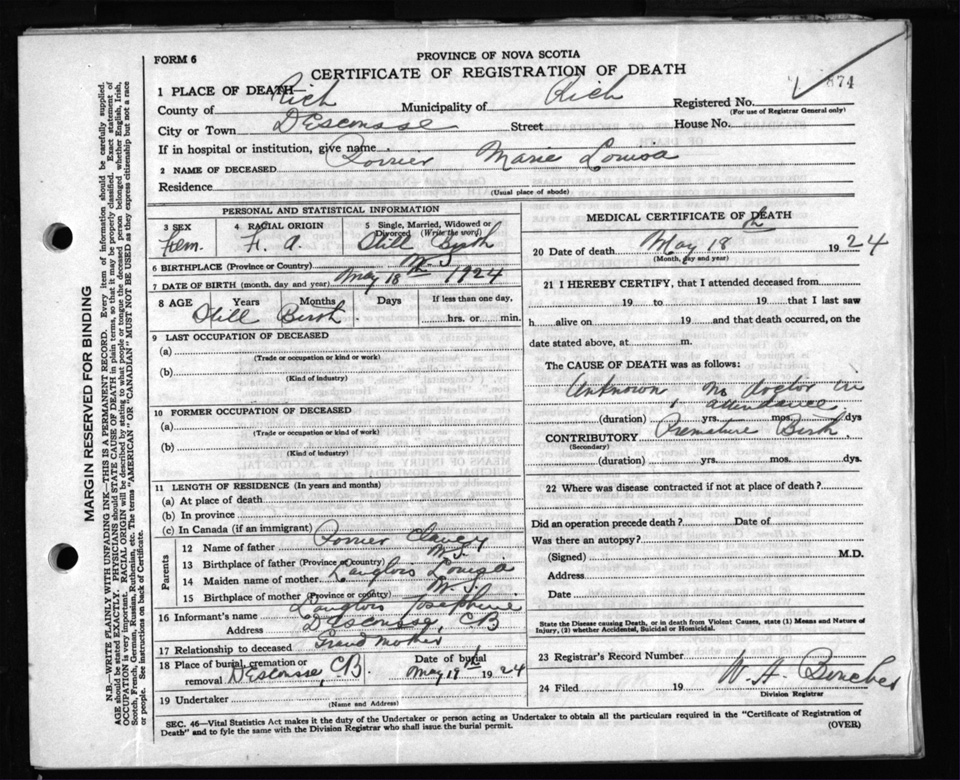 FORM 6
PROVINCE OF NOVA SCOTIA
CERTIFICATE OF REGISTRATION OF DEATH
874
1 PLACE OF DEATH
County of Rich Municipality of Rich Registered No.
(For use of Registrar General only)
City or Town DEscousse Street House No.
If in hospital or institution, give name
2 NAME OF DECEASED Poirrier Marie Louisa
Residence
(Usual place of abode)
PERSONAL AND STATISTICAL INFORMATION
3 SEX 4 RACIAL ORIGIN 5 Single, Married, Widowed or Divorced (Write the word)
Fem. F. A. Still Birth
6 BIRTHPLACE (Province or Country) N.S.
7 DATE OF BIRTH (month, day and year) May 18th 1924
8 AGE Years Months Days If less than one day,
Still Birth. hrs. or min.
9 LAST OCCUPATION OF DECEASED
(a)
(Trade or occupation or kind or work)
(b)
(Kind of industry)
10 FORMER OCCUPATION OF DECEASED
(a)
(Trade or occupation or kind of work)
(b)
(Kind of industry)
11 LENGTH OF RESIDENCE (In years and months)
(a) At place of death
(b) In province
(c) In Canada (if an immigrant)
Parents
12 Name of father Poirrier
13 Birthplace of father (Province or Country) N.S.
14 Maiden name of mother Langlois Louisa
15 Birthplace of mother (Province or Country) N.S.
16 Informant's name Langlois Josephine
Address DEscousse, CB
17 Relationship to deceased Grand mother
18 Place of burial, cremation or Date of burial
removal DEscousse, CB. May 19th 1924
19 Undertaker
(Name and Address)
MEDICAL CERTIFICATE OF DEATH
20 Date of death May 18th 1924
(Month, day and year)
21 I HEREBY CERTIFY, that I attended deceased from
19 to 19 that I last saw
h alive on 19 and that death occurred, on the
date stated above, at m.
The CAUSE OF DEATH was as follows:
Unknown no doctor in
attendance
(duration) yrs. mos. dys
CONTRIBUTORY Premature Birth.
(Secondary)
(duration) yrs. mos. dys.
22 Where was disease contracted if not at place of death?
Did an operation precede death? Date of
Was there an autopsy?
(Signed) M.D.
Address
Date
State the Disease causing Death, or in death from Violent Causes, state (1) Means and Nature of
Injury, (2) whether Accidental, Suicidal or Homicidal.
23 Registrar's Record Number
24 Filed 19 W. A.
Division Registrar
SEC. 46—Vital Statistics Act makes it the duty of the Undertaker or person acting as Undertaker to obtain all the particulars required in the "Certificate of Registration of
Death" and to fyle the same with the Division Registrar who shall issue the burial permit. (OVER)
MARGIN RESERVED FOR BINDING
N.B.—WRITE PLAINLY WITH UNFADING INK—THIS IS A PERMANENT RECORD. Every item of information should be carefully supplied.
AGE should be stated EXACTLY. PHYSICIANS should STATE CAUSE OF DEATH in plain terms, so that it may be properly classified. Exact statement of
OCCUPATION is very important. RACIAL ORIGIN will be described by stating to what people or tongue the deceased person belonged whether English, Irish,
Scotch, French, German, Russian, Ruthenian, etc. The terms "AMERICAN" or "CANADIAN" MUST NOT BE USED as they express citizenship but not a race
or people. See instructions on back of Certificate.